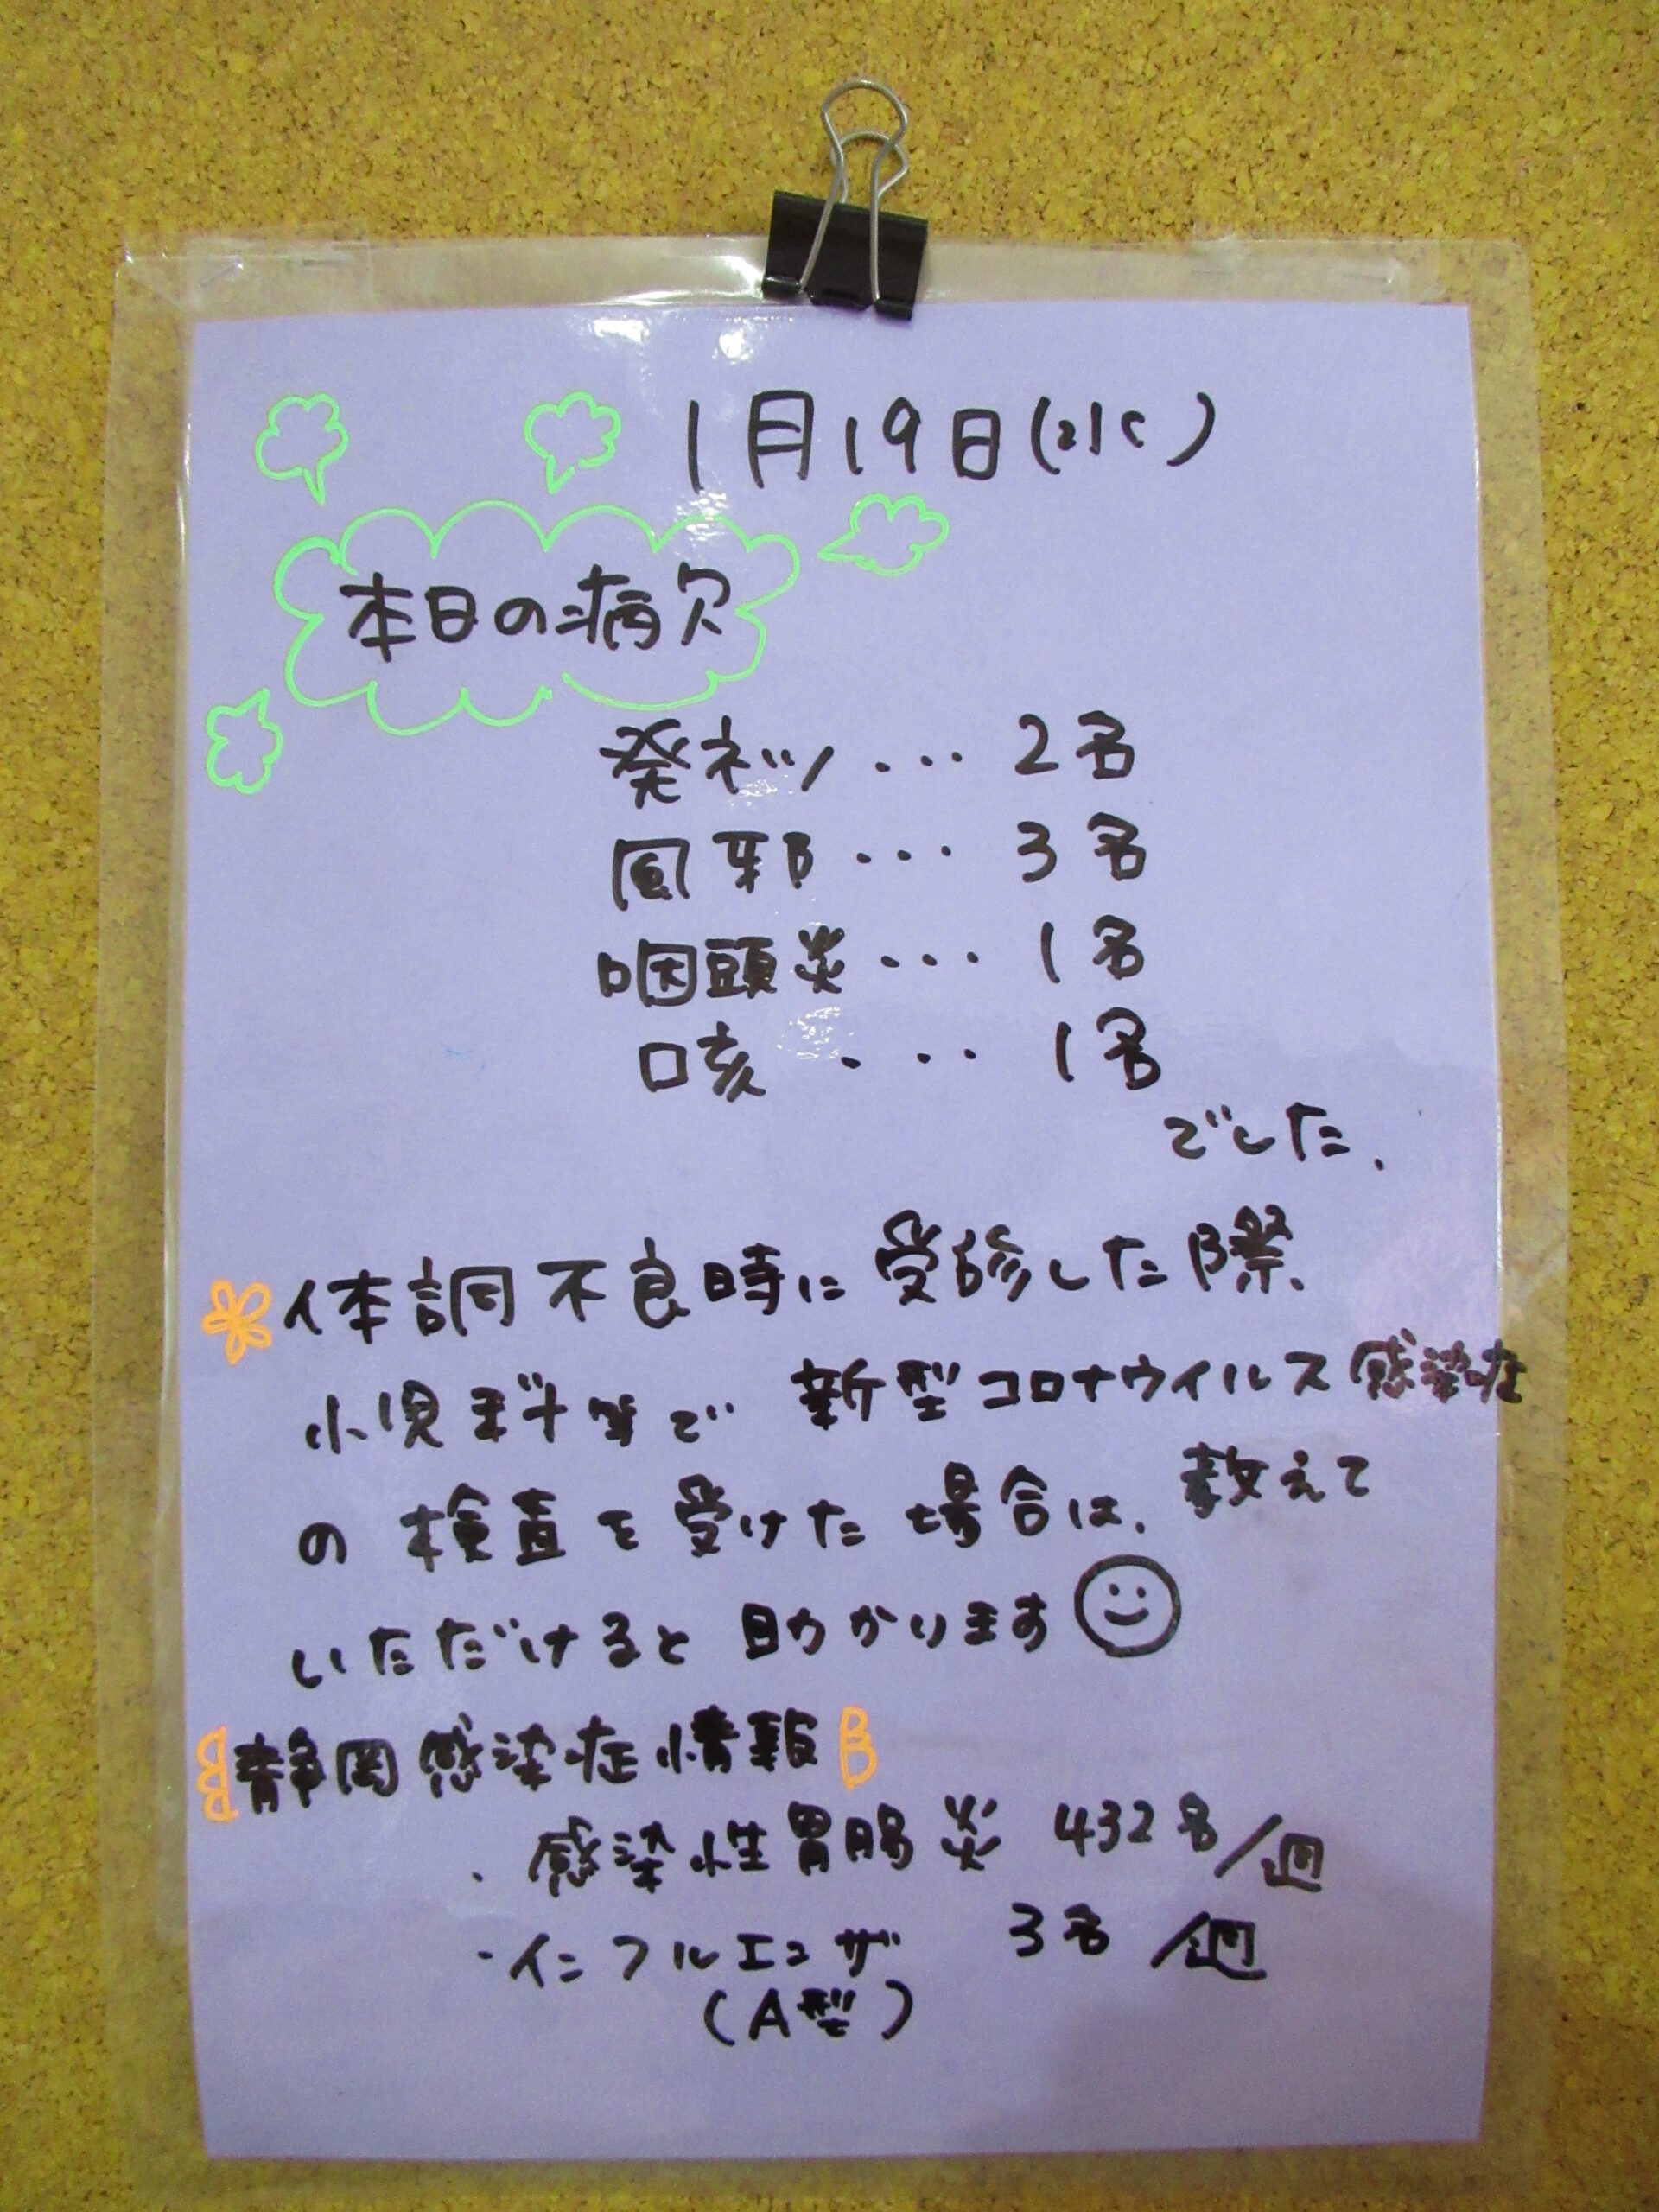 1月19日(水)
本日の病欠
発ネツ・・・2名
風邪・・・3名
咽頭炎・・・1名
咳・・・1名
でした、
体調不良時に受診した際、
小児科等で新型コロナウイルス感染症
の検査を受けた場合は、教えて
いただけると助かります
静岡感染症情報
・感染性胃腸炎 432名/週
・インフルエンザ 3名/週
(A型)